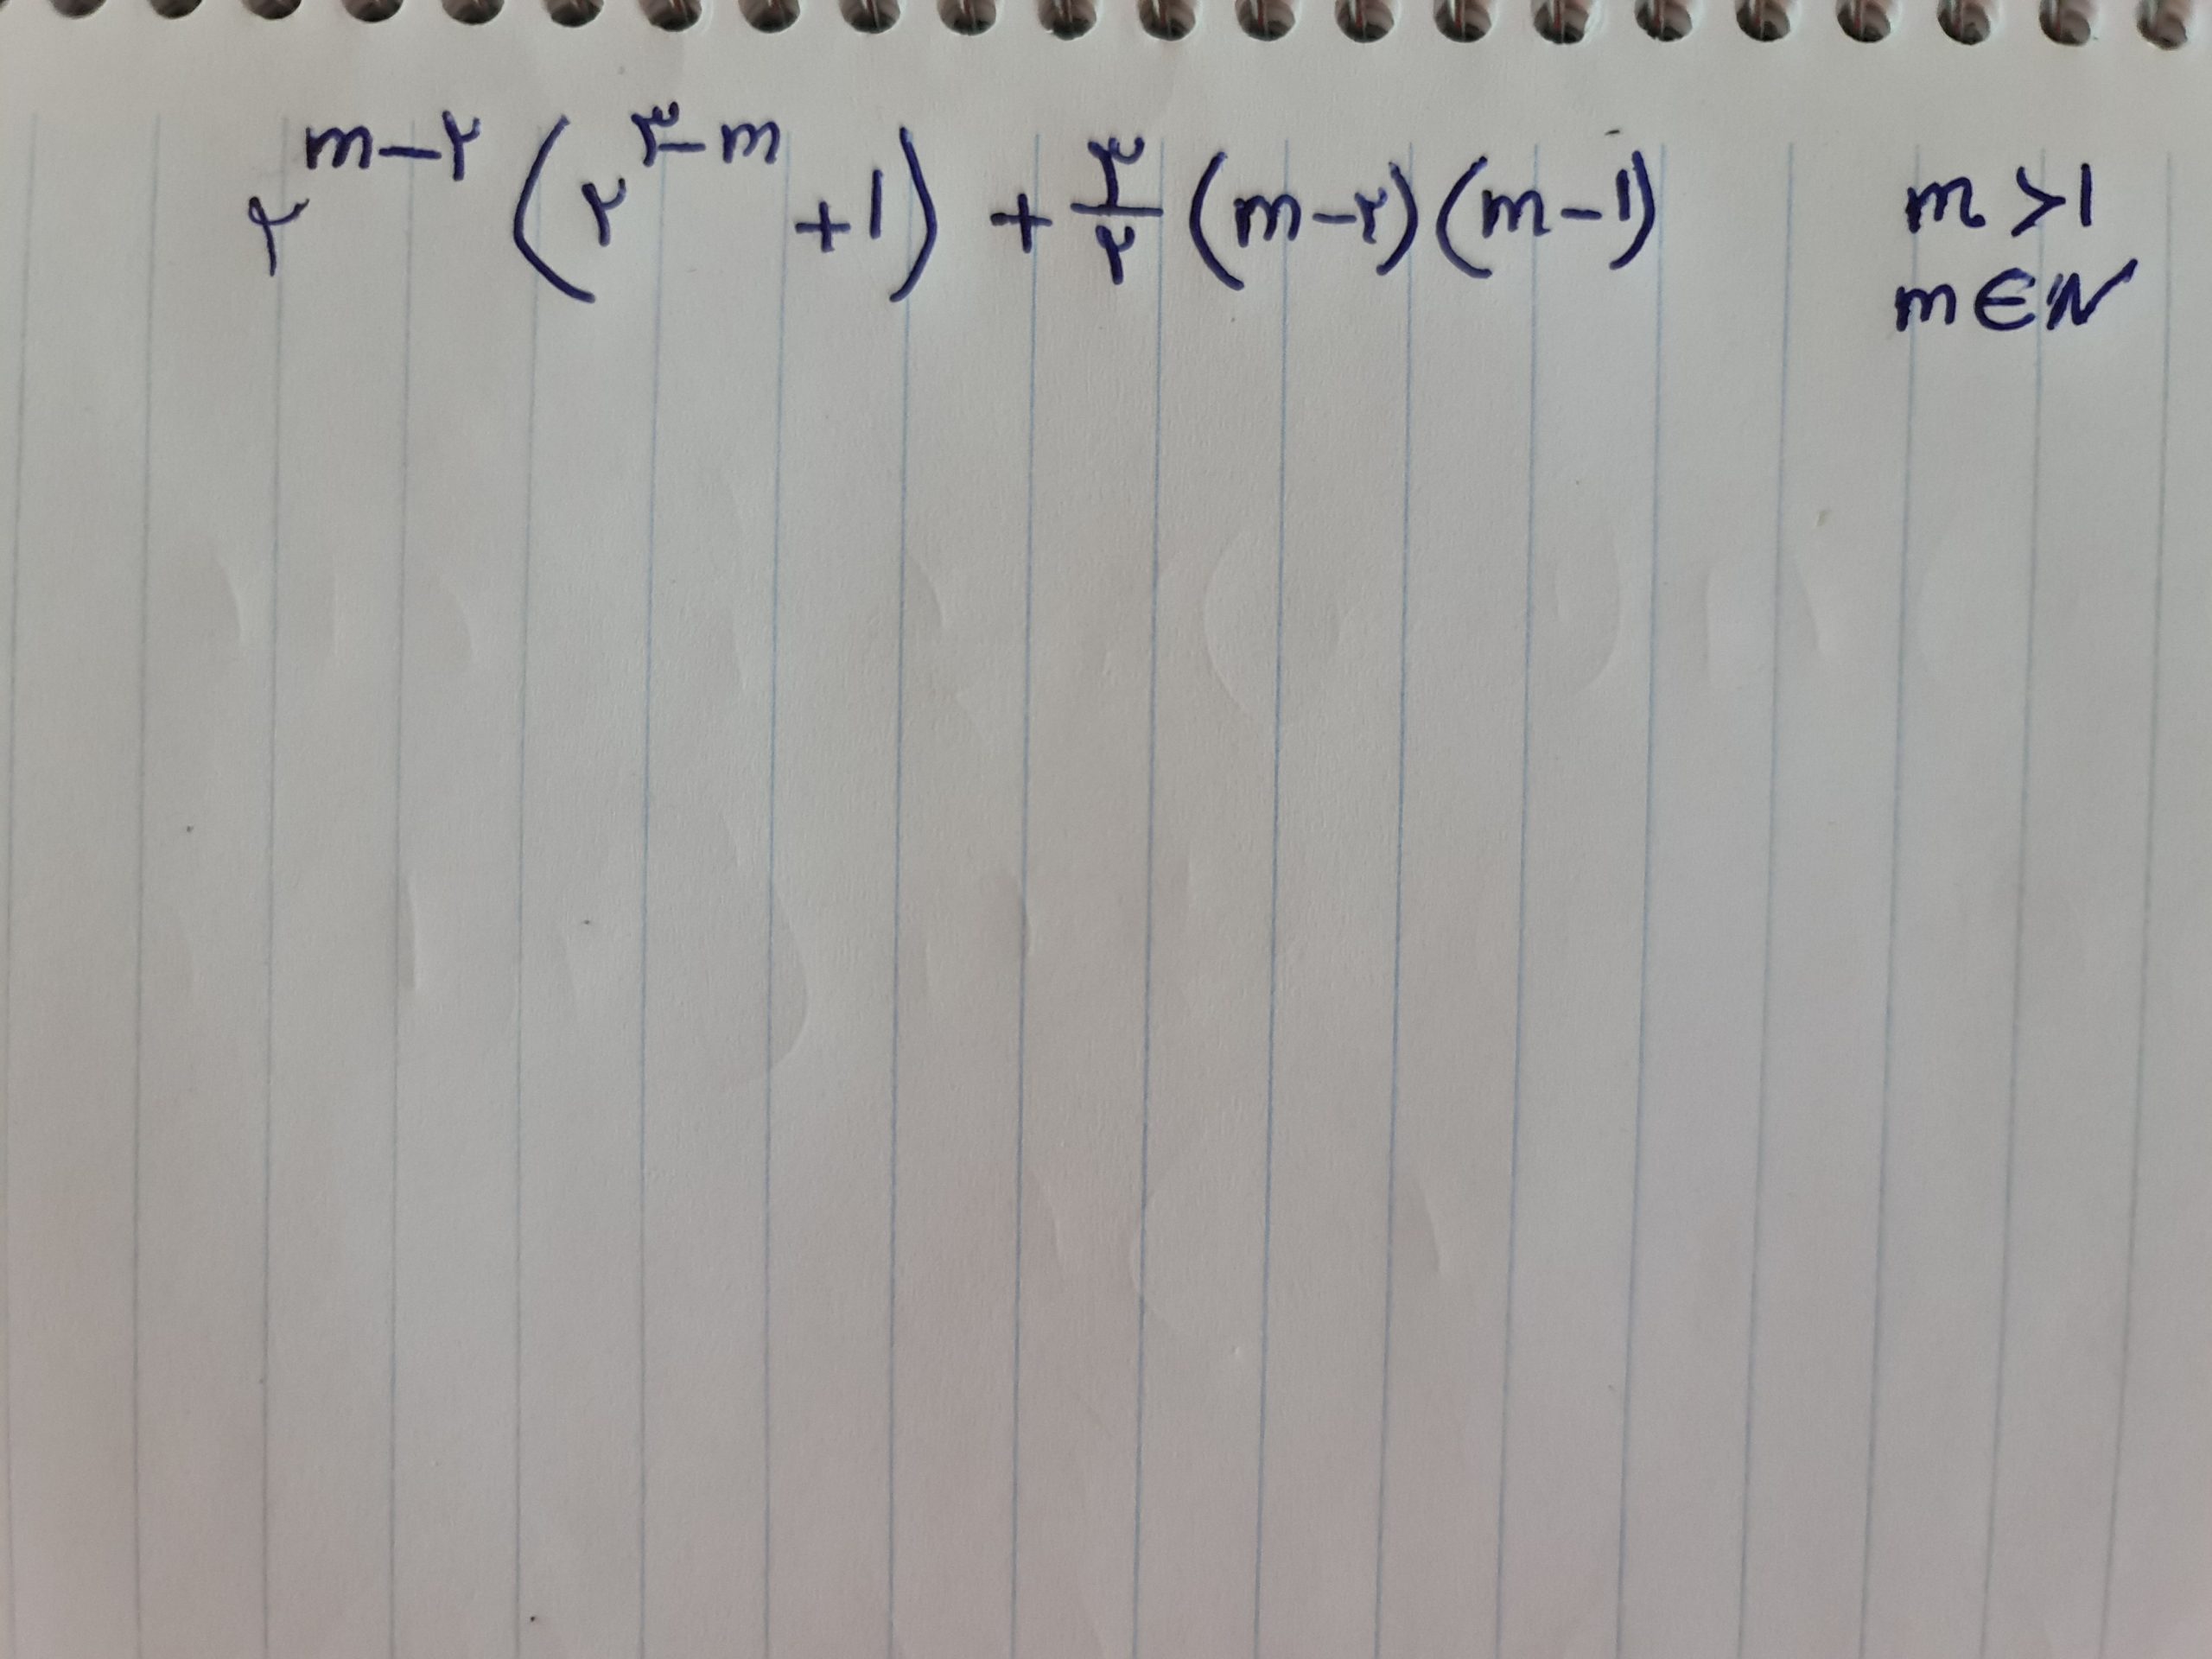 ۲^(m-۲) (۲^(۳-m) +۱) + ۳/۲ (m-۲)(m-۱) m>۱
m∈N